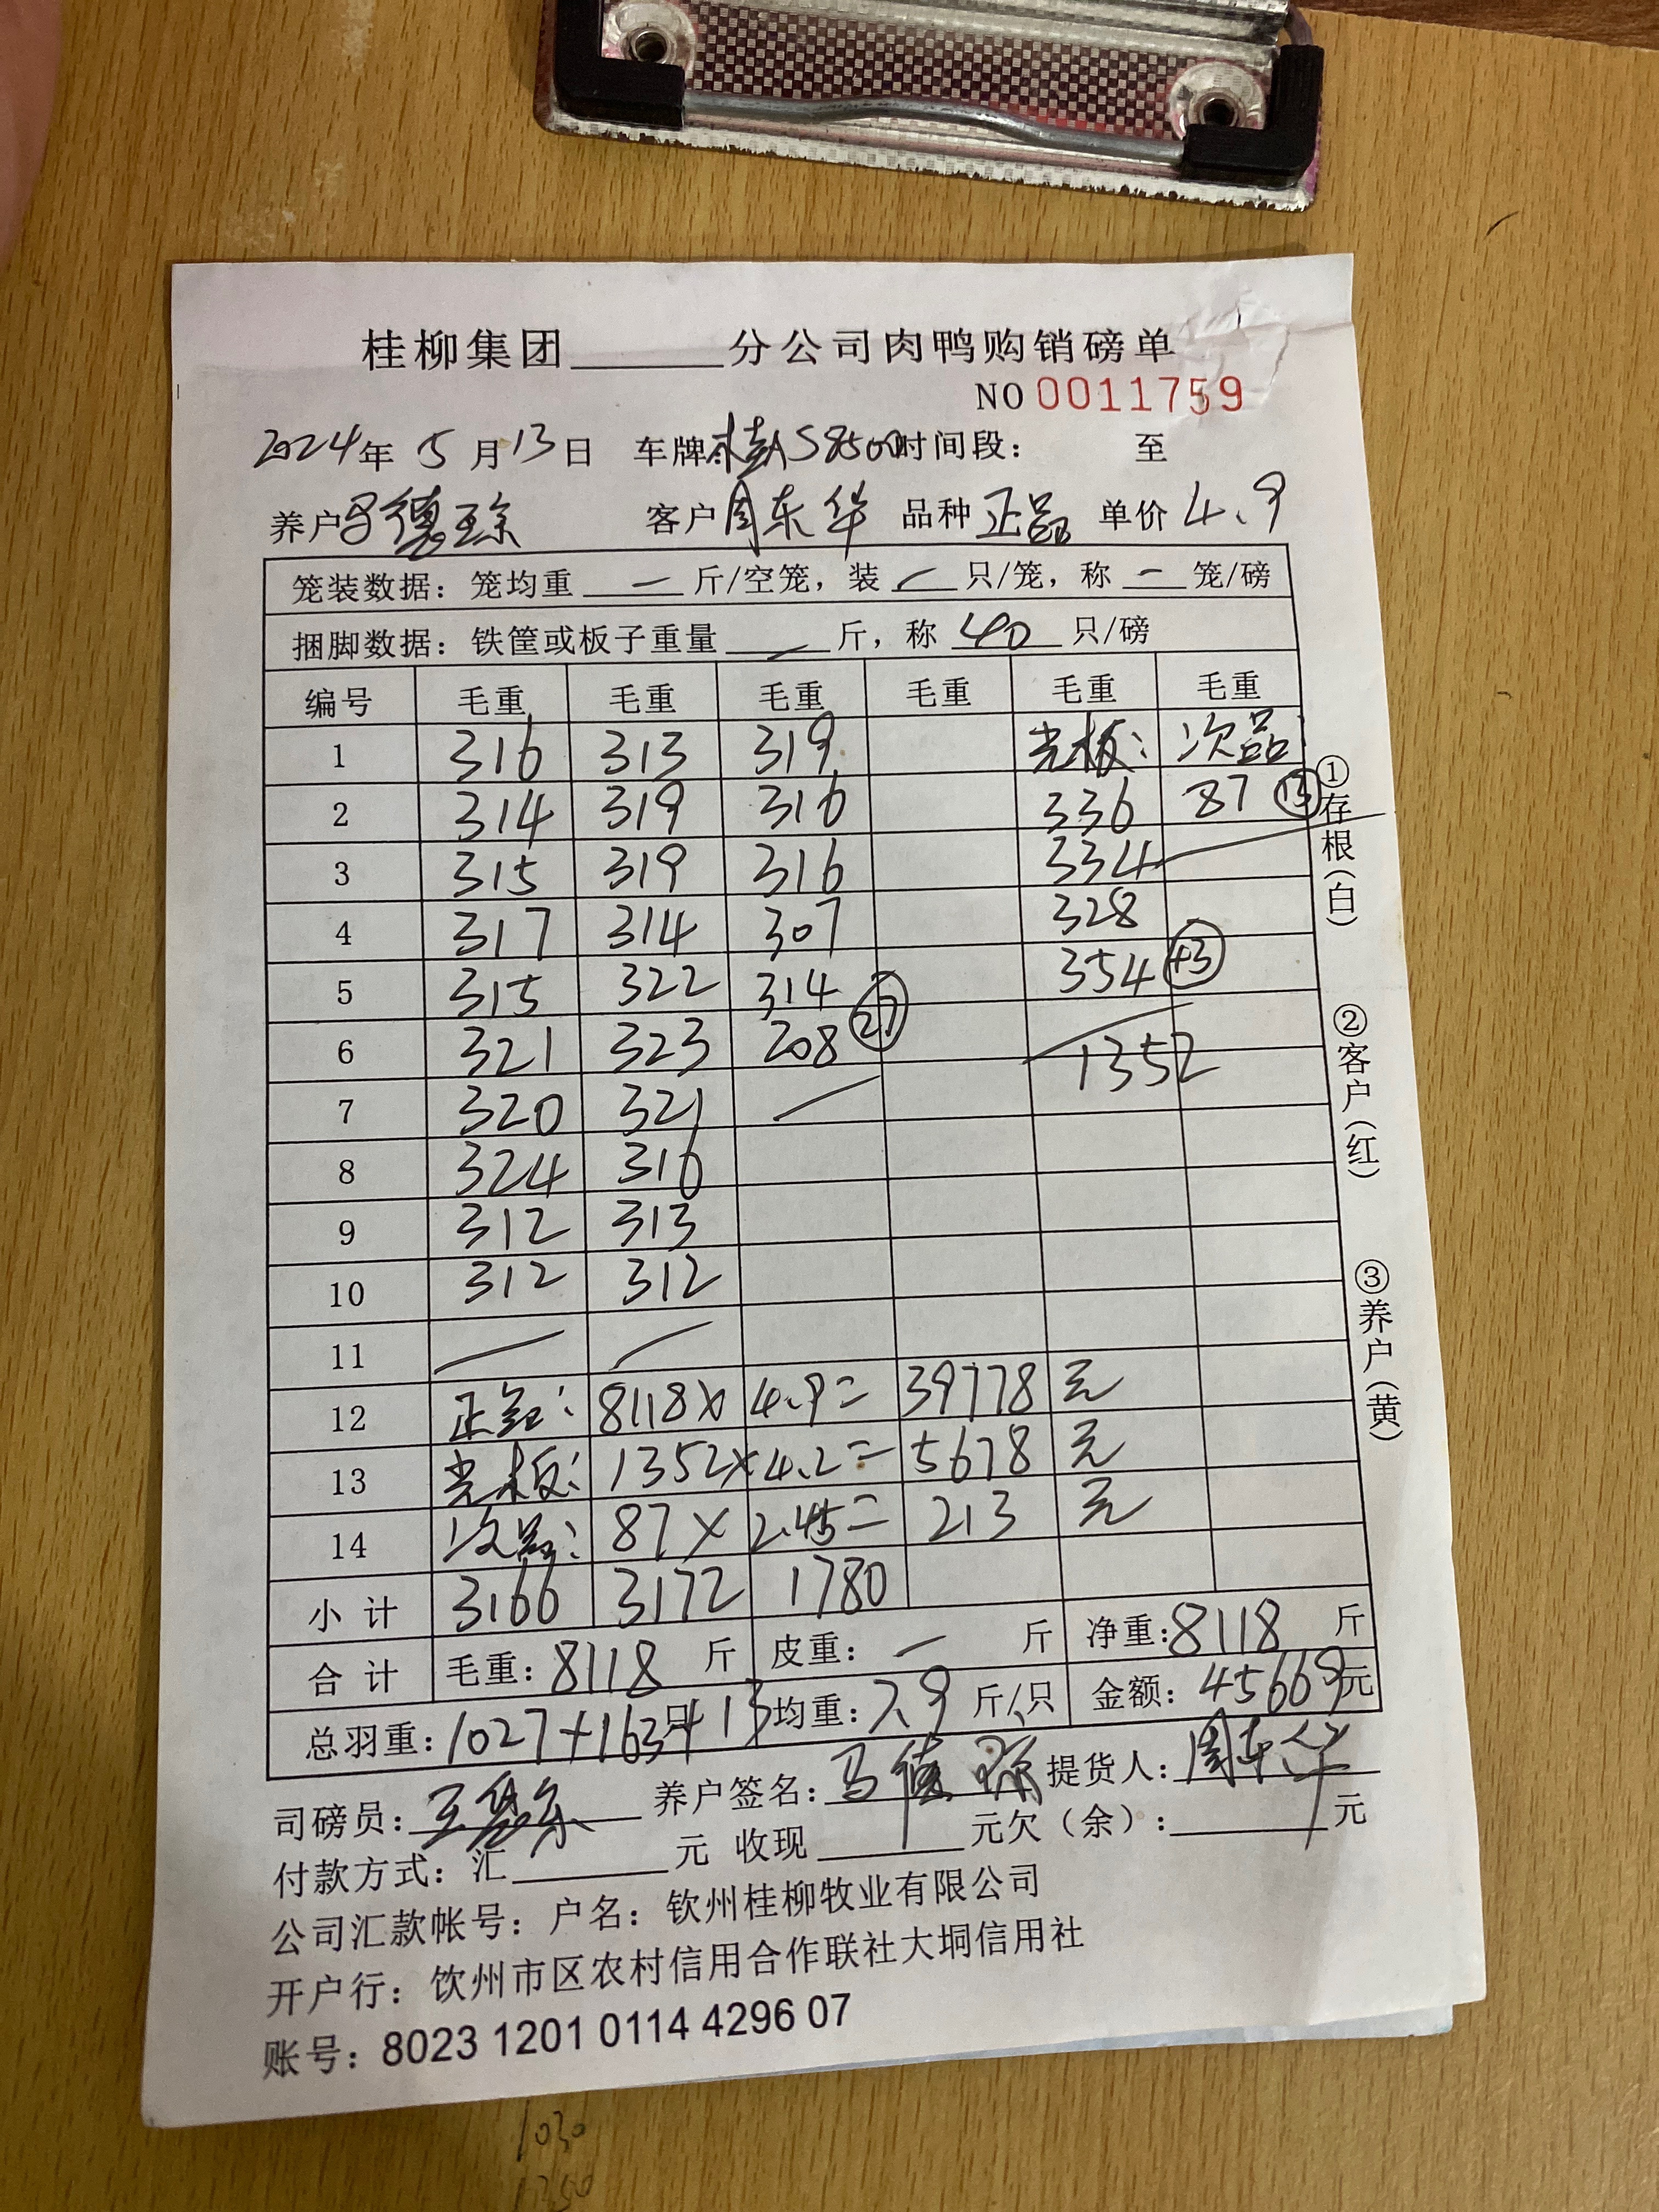 桂柳集团______分公司肉鸭购销磅单
NO 0011759
2024年 5月13日 车牌:桂AS8500时间段: 至
养户 马德琼 客户 周东华 品种 正品 单价 4.9
笼装数据: 笼均重 — 斤/空笼, 装 — 只/笼, 称 — 笼/磅
捆脚数据: 铁筐或板子重量 — 斤, 称 40 只/磅
编号 毛重 毛重 毛重 毛重 毛重 毛重
1 316 313 319 光板: 次品:
2 314 319 316 336 87 ⑬
3 315 319 316 334
4 317 314 307 328
5 315 322 314 354 (43)
6 321 323 208 (27) 1352
7 320 321
8 324 316
9 312 313
10 312 312
11
12 正品: 8118 × 4.9 = 39778 元
13 光板: 1352 × 4.2 = 5678 元
14 次品: 87 × 2.45 = 213 元
小计 3166 3172 1780
合计 毛重: 8118 斤 皮重: — 斤 净重: 8118 斤
总羽重: 1027+163+13 只 均重: 7.9 斤/只 金额: 45669元
司磅员: 养户签名: 马德琼 提货人: 周东华
付款方式: 汇______元 收现______元欠(余):______元
公司汇款帐号: 户名: 钦州桂柳牧业有限公司
开户行: 钦州市区农村信用合作联社大垌信用社
账号: 8023 1201 0114 4296 07
①存根(白)
②客户(红)
③养户(黄)
1030
1350